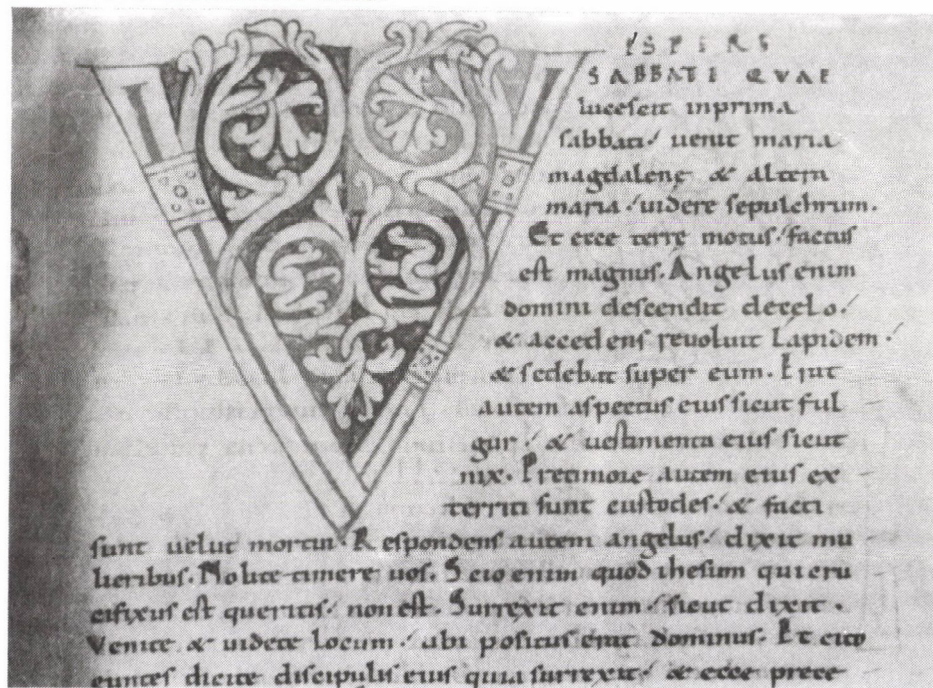 VESPERE
SABBATI QVAE
lucescit inprima
sabbati uenit maria
magdalenę & altera
maria uidere sepulchrum.
Et ecce terrę motus factus
est magnus. Angelus enim
domini descendit decęlo.
& accedens reuoluit Lapidem.
& sedebat super eum. Erat
autem aspectus eius sicut ful
gur. & uestimenta eius sicut
nix. Pretimore autem eius ex
territi sunt custodes. & facti
sunt uelut mortui. Respondens autem angelus dixit mu
lieribus. Nolite timere uos. Scio enim quod ihesum qui cru
cifixus est queritis. non est. Surrexit enim sicut dixit.
Venite & uidete Locum. ubi positus erat dominus. Et cito
euntes dicite discipulis eius quia surrexit. & ecce prece